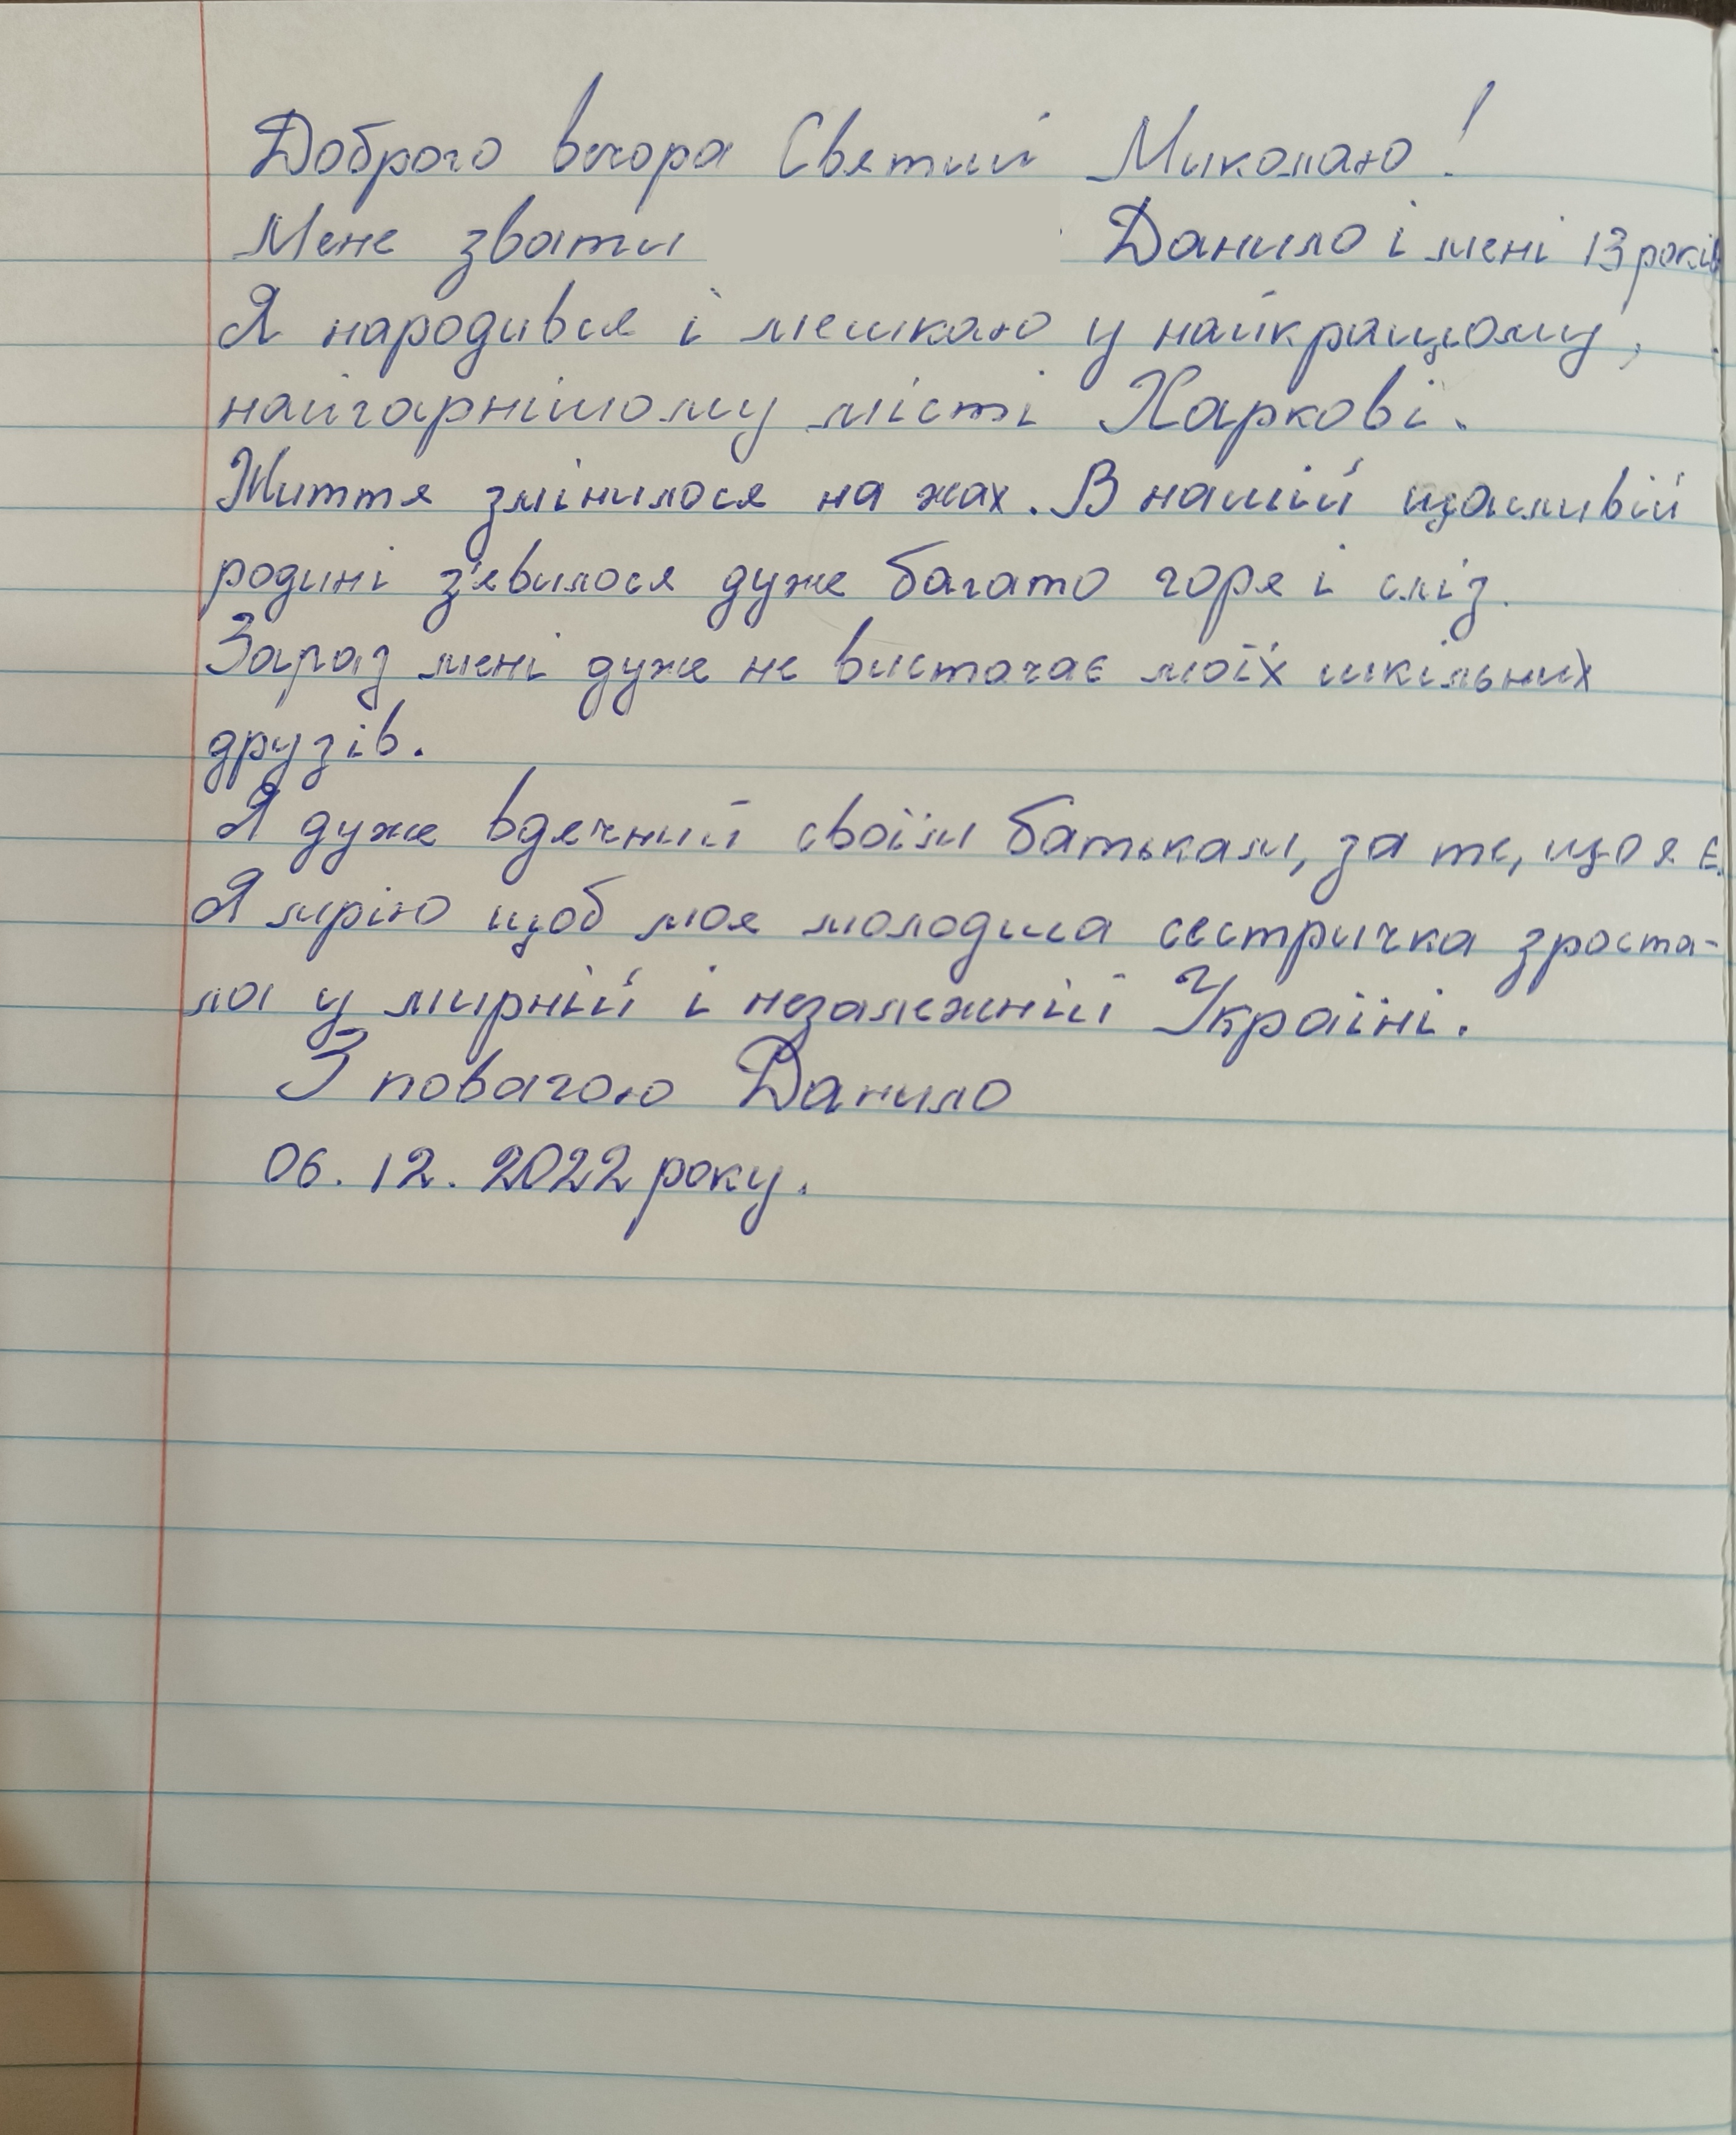 Доброго вечора Святий Миколаю!
Мене звати Данило і мені 13 років
Я народився і мешкаю у найкращому,
найгарнішому місті Харкові.
Життя змінилося на жах. В нашій щасливій
родині з'явилося дуже багато горя і сліз.
Зараз мені дуже не вистачає моїх шкільних
друзів.
Я дуже вдячний своїм батькам, за те, що я є.
Я мрію щоб моя молодша сестричка зроста-
ла у мирній і незалежній Україні.
З повагою Данило
06.12.2022 року.